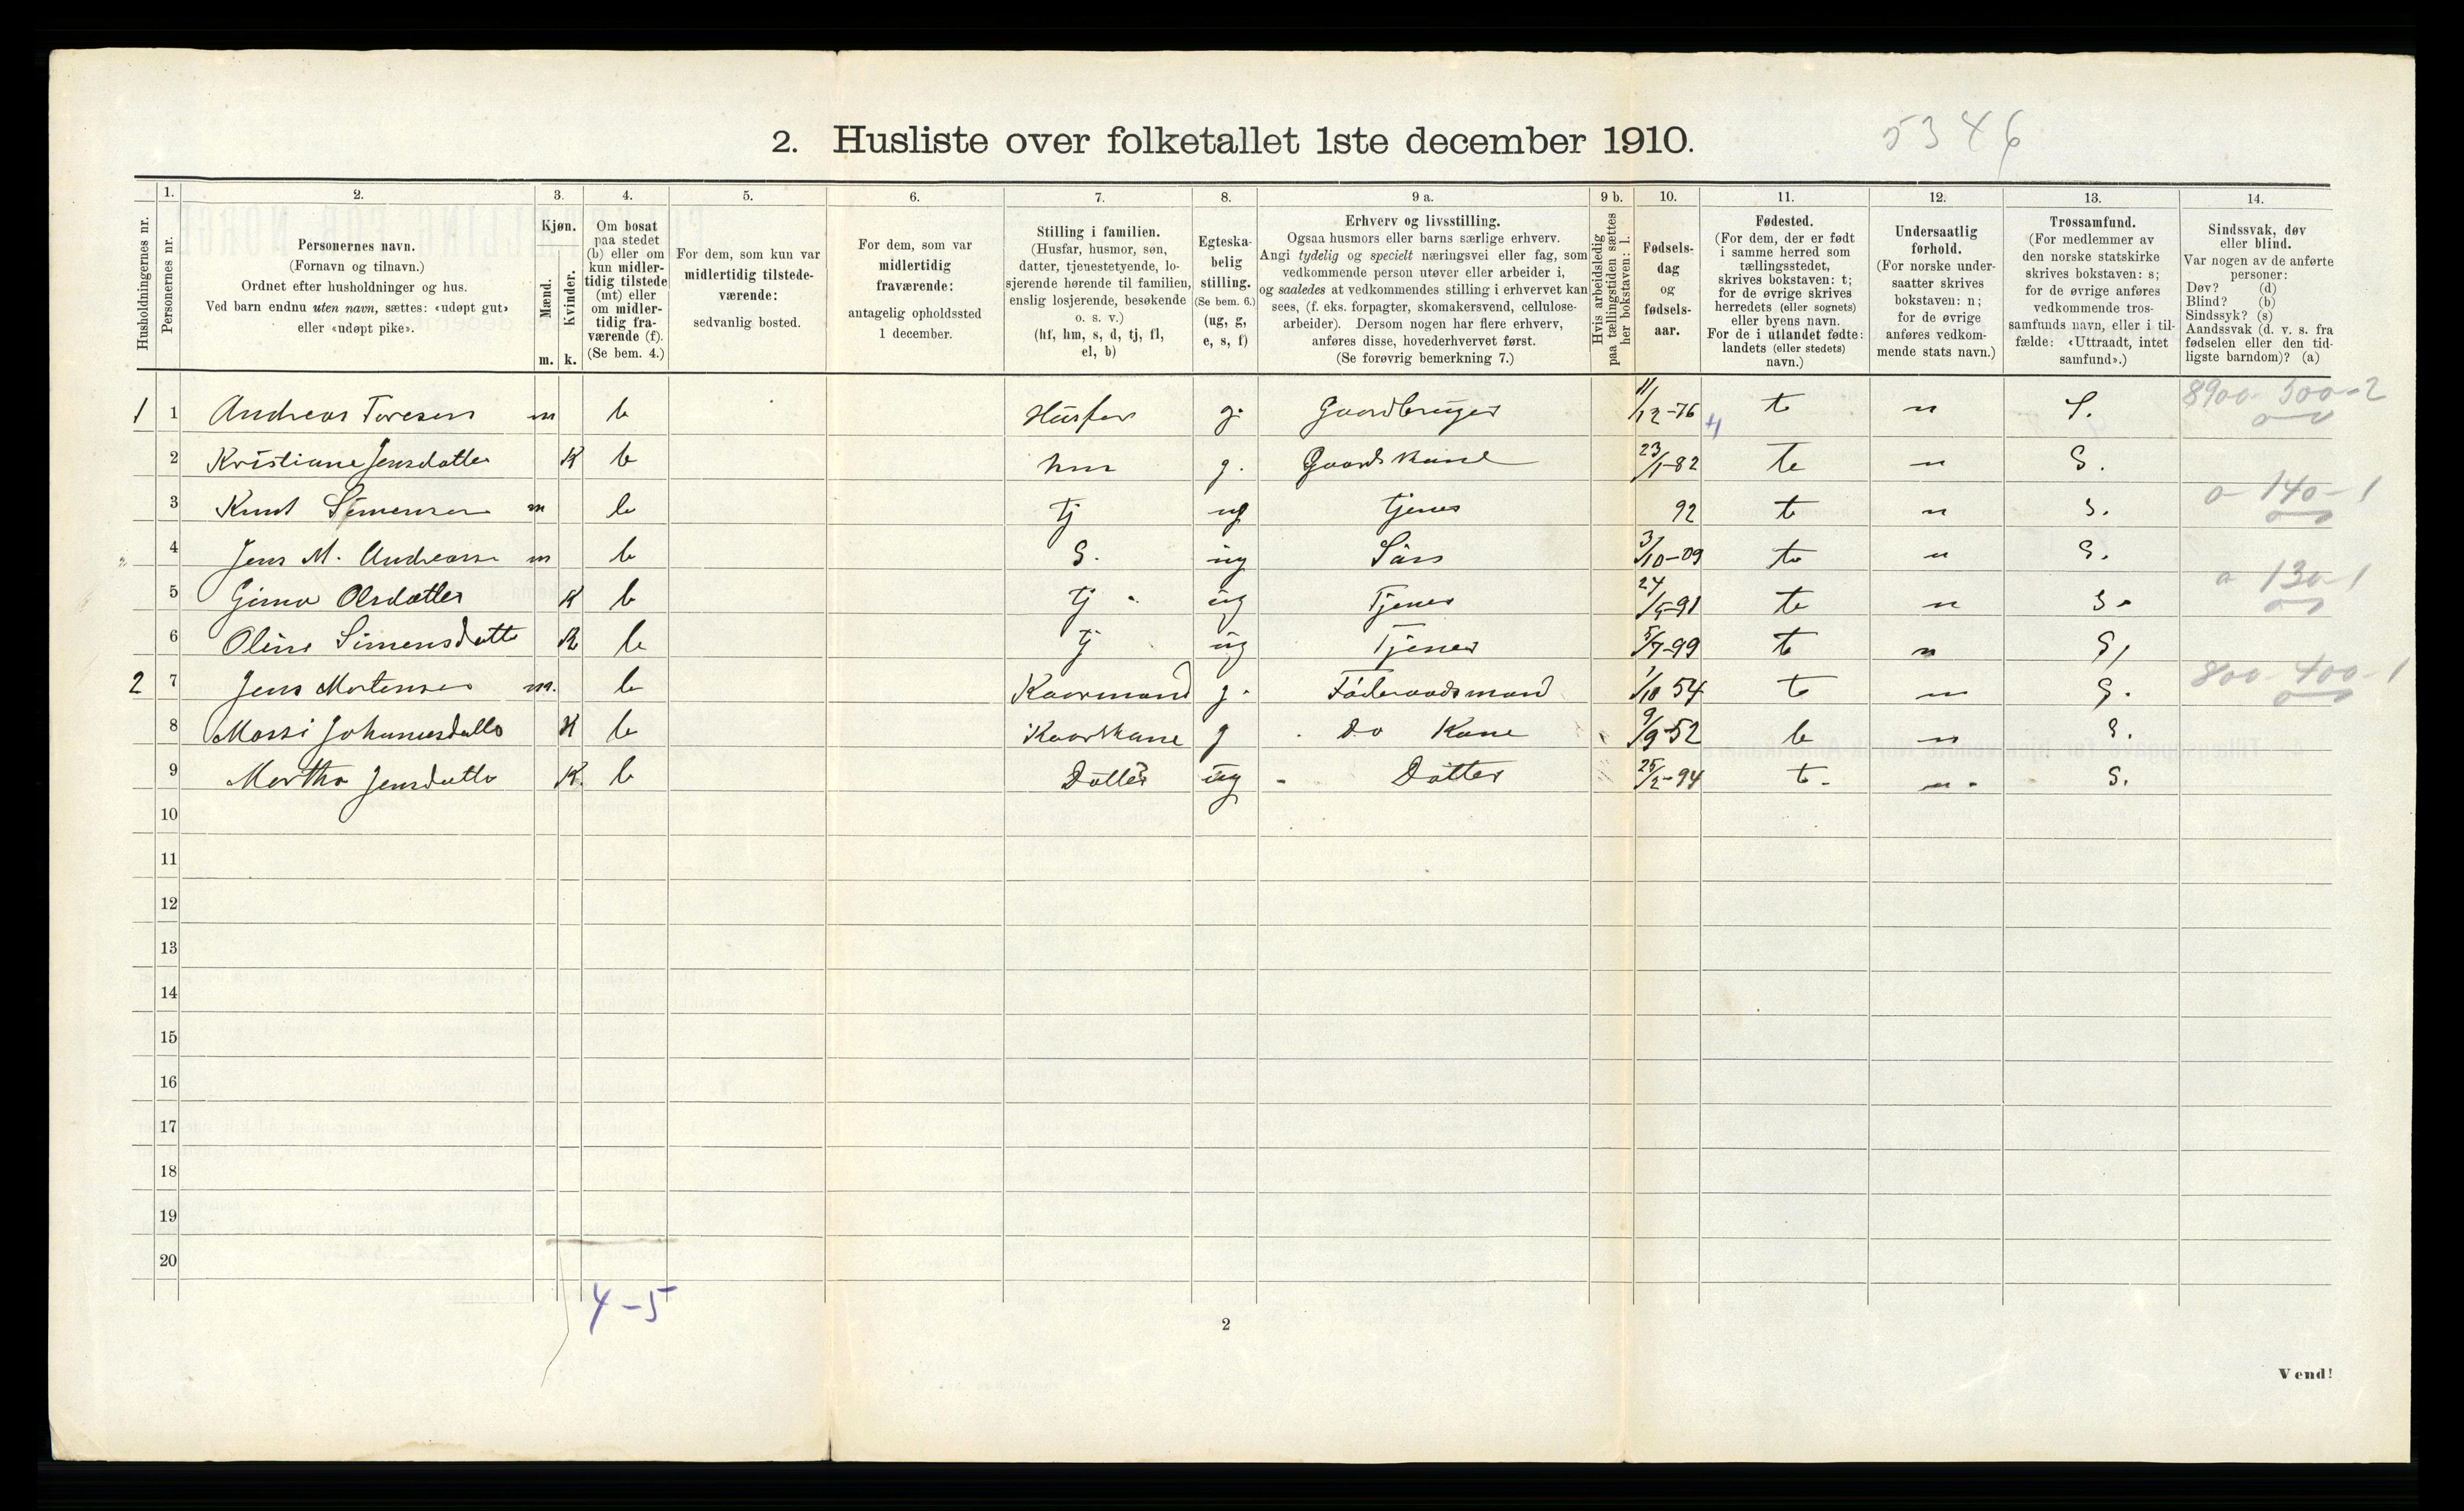 2. Husliste over folketallet 1ste december 1910. 5346
Husholdningernes nr.
1. Personernes nr.
2. Personernes navn.
(Fornavn og tilnavn.)
Ordnet efter husholdninger og hus.
Ved barn endnu uten navn, sættes: «udøpt gut»
eller «udøpt pike».
3. Kjøn.
Mænd. m.
Kvinder. k.
4. Om bosat
paa stedet
(b) eller om
kun midler-
tidig tilstede
(mt) eller
om midler-
tidig fra-
værende (f).
(Se bem. 4.)
5. For dem, som kun var
midlertidig tilstede-
værende:
sedvanlig bosted.
6. For dem, som var
midlertidig
fraværende:
antagelig opholdssted
1 december.
7. Stilling i familien.
(Husfar, husmor, søn,
datter, tjenestetyende, lo-
sjerende hørende til familien,
enslig losjerende, besøkende
o. s. v.)
(hf, hm, s, d, tj, fl,
el, b)
8. Egteska-
belig
stilling.
(Se bem. 6.)
(ug, g,
e, s, f)
9 a. Erhverv og livsstilling.
Ogsaa husmors eller barns særlige erhverv.
Angi tydelig og specielt næringsvei eller fag, som
vedkommende person utøver eller arbeider i,
og saaledes at vedkommendes stilling i erhvervet kan
sees, (f. eks. forpagter, skomakersvend, cellulose-
arbeider). Dersom nogen har flere erhverv,
anføres disse, hovederhvervet først.
(Se forøvrig bemerkning 7.)
9 b. Hvis arbeidsledig
paa tællingstiden sættes
her bokstaven: l.
10. Fødsels-
dag
og
fødsels-
aar.
11. Fødested.
(For dem, der er født
i samme herred som
tællingsstedet,
skrives bokstaven: t;
for de øvrige skrives
herredets (eller sognets)
eller byens navn.
For de i utlandet fødte:
landets (eller stedets)
navn.)
12. Undersaatlig
forhold.
(For norske under-
saatter skrives
bokstaven: n;
for de øvrige
anføres vedkom-
mende stats navn.)
13. Trossamfund.
(For medlemmer av
den norske statskirke
skrives bokstaven: s;
for de øvrige anføres
vedkommende tros-
samfunds navn, eller i til-
fælde: «Uttraadt, intet
samfund».)
14. Sindssvak, døv
eller blind.
Var nogen av de anførte
personer:
Døv? (d)
Blind? (b)
Sindssyk? (s)
Aandssvak (d. v. s. fra
fødselen eller den tid-
ligste barndom)? (a)
1 1 Andreas Toresen m b Husfar g. Gaardbruger 11/12-76 t n S. 8900-500-2
2 Kristiane Jensdatter K b hm g. Gaardskone 23/1-82 t n S.
3 Knut Simensen m b tj ug tjener 92 t n S. 0-140-1
4 Jens M. Andreasen m b S. ug Søn 3/10-09 t n S.
5 Olsdatter K b tj ug Tjener 24/5-91 t n S. 0-130-1
6 Oline Simensdatter K b tj ug Tjener 5/7-99 t n S,
2 7 Jens Mortensen m. b Kaarmand g. Føderaadsmand 1/10 54 t n S. 800-400-1
8 Massi Johannesdatter K b Kaarkone g Do Kone 9/9-52 t n S.
9 Martha Jensdatter K. b Datter ug - Datter 25/2-94 t. n. S.
10
11
12
13
14
15
16
17
18
19
20
4-5
2
Vend!